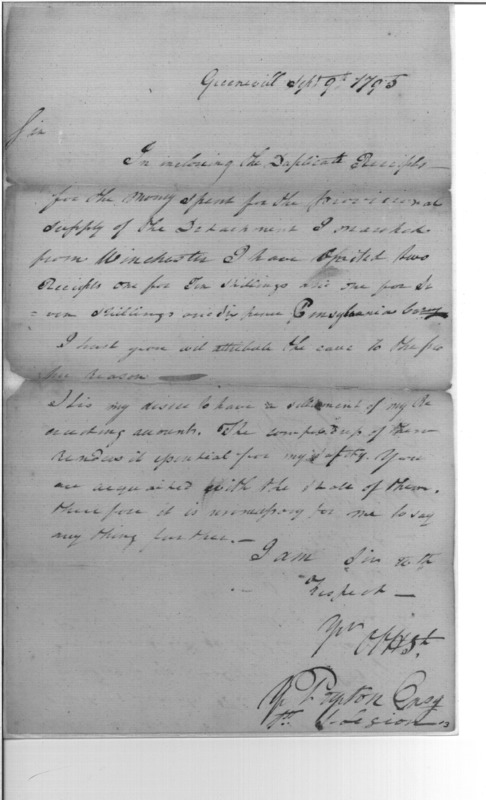 Greenevill Sept 9th 1795
Sir
In inclosing the Duplicate Receipts
for the money spent for the provisional
supply of the Detachment I marched
from Winchester I have omitted two
Receipts one for Ten Shillings and one for Se
= ven Shillings and six pence Pensylvania Curry
I trust you will attribute the cause to the pro
per reason
It is my desire to have a settlement of my Re
cruiting accounts. The complexity of them
renders it essential for my safety. You
are acquainted with the state of them,
therefore it is unnecessary for me to say
any thing further. —
I am Sir with
Respect —
Yr Ob H St.
Y Peyton Ensg
Legion